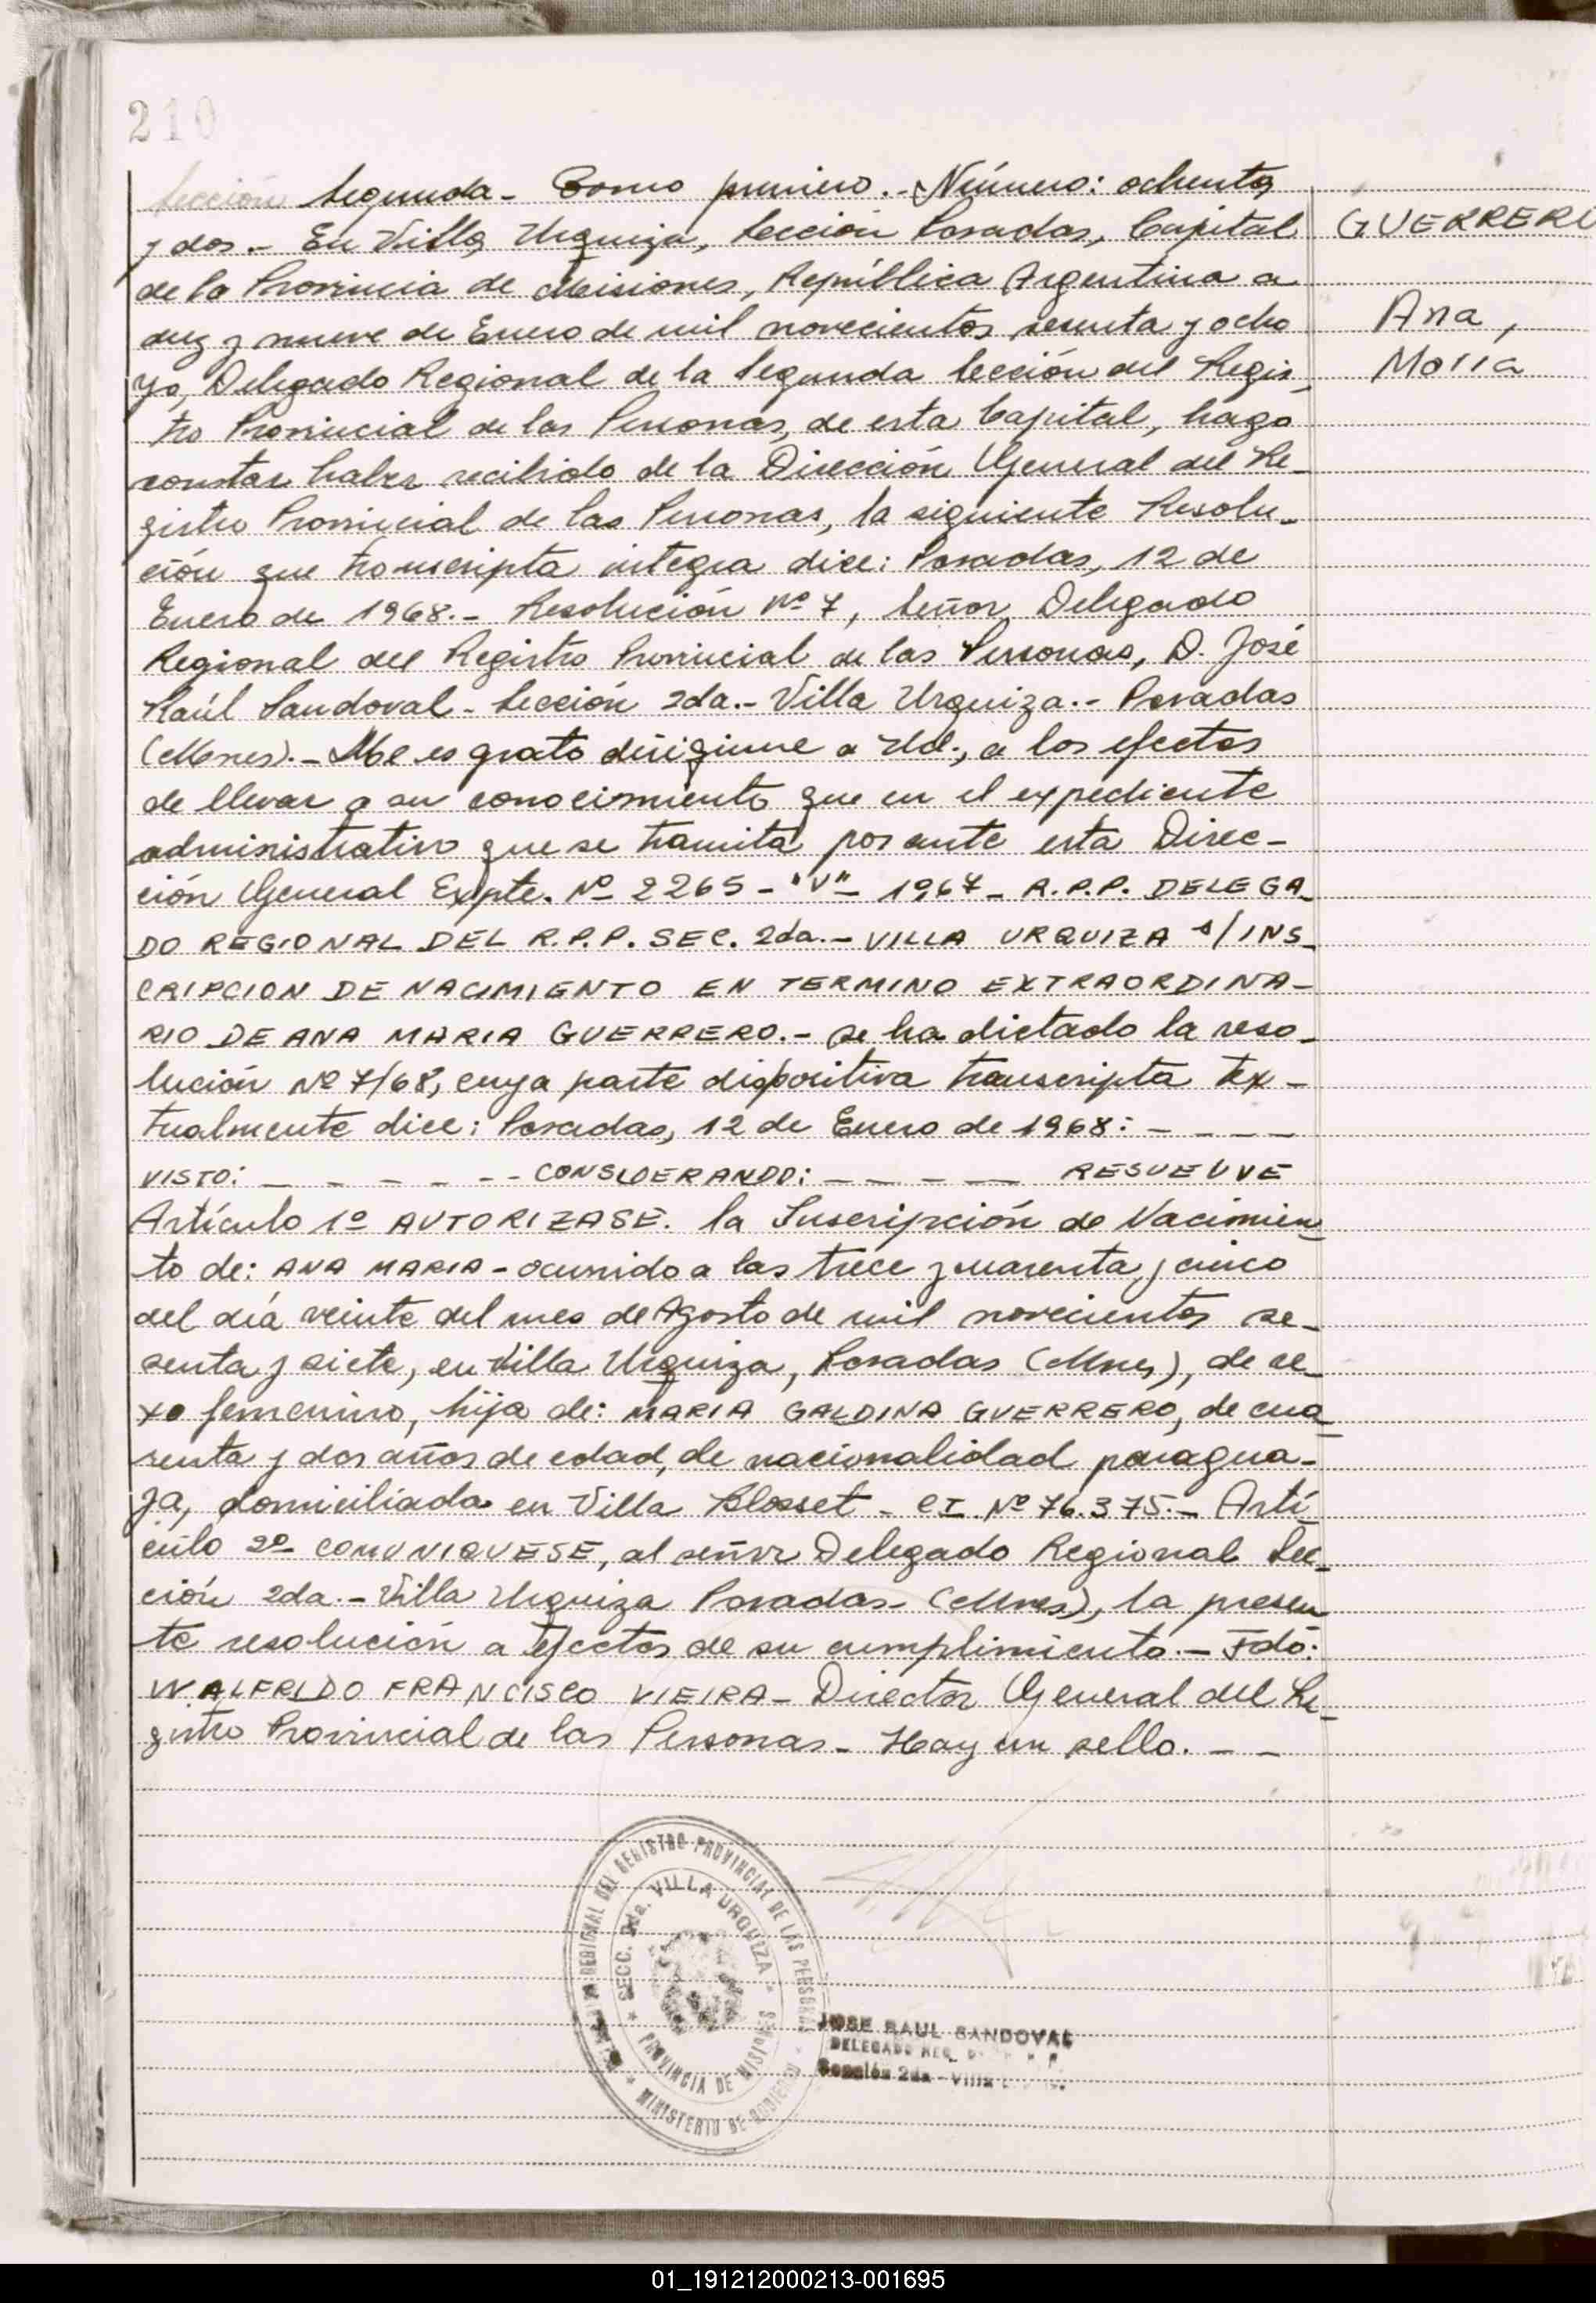 210
Sección Segunda - Tomo primero. - Número: ochenta
y dos. - En Villa Urquiza, Sección Posadas, Capital
GUERRERO
de la Provincia de Misiones, República Argentina a
diez y nueve de Enero de mil novecientos sesenta y ocho
Ana,
Yo, Delegado Regional de la Segunda Sección del Regis-
Maria
tro Provincial de las Personas, de esta Capital, hago
constar haber recibido de la Dirección General del Re-
gistro Provincial de las Personas, la siguiente Resolu-
ción que transcripta integra dice: Posadas, 12 de
Enero de 1968. - Resolución Nº 7, Señor Delegado
Regional del Registro Provincial de las Personas, D. José
Raúl Sandoval - Sección 2da. - Villa Urquiza. - Posadas
(Mnes). - Me es grato dirigirme a Ud., a los efectos
de llevar a su conocimiento que en el expediente
administrativo que se tramita por ante esta Direc-
ción General Expte. Nº 2265 - "V" - 1967 - R.P.P. DELEGA-
DO REGIONAL DEL R.P.P. SEC. 2da. - VILLA URQUIZA s/INS-
CRIPCION DE NACIMIENTO EN TERMINO EXTRAORDINA-
RIO DE ANA MARIA GUERRERO. - Se ha dictado la reso-
lución Nº 7/68, cuya parte dispositiva transcripta tex-
tualmente dice: Posadas, 12 de Enero de 1968: - - - -
VISTO: - - - - - - - CONSIDERANDO: - - - - - RESUELVE
Artículo 1º AUTORIZASE. la Inscripción de Nacimien-
to de: ANA MARIA - ocurrido a las trece y cuarenta y cinco
del día veinte del mes de Agosto de mil novecientos se-
senta y siete, en Villa Urquiza, Posadas (Mnes), de se-
xo femenino, hija de: MARIA GALDINA GUERRERO, de cua-
renta y dos años de edad, de nacionalidad paragua-
ya, domiciliada en Villa Blosset - CI. Nº 76.375. - Artí-
culo 2º COMUNIQUESE, al señor Delegado Regional Sec-
ción 2da. - Villa Urquiza Posadas - (Mnes), la presen-
te resolución a efectos de su cumplimiento. - Fdo:
WALFRIDO FRANCISCO VIEIRA - Director General del Re-
gistro Provincial de las Personas - Hay un sello. - -
REGIONAL DEL REGISTRO PROVINCIAL DE LAS PERSONAS
SECC. 2da. VILLA URQUIZA
PROVINCIA DE MISIONES
MINISTERIO DE GOBIERNO
JOSE RAUL SANDOVAL
DELEGADO REG.
Sección 2da - Villa
01_191212000213-001695